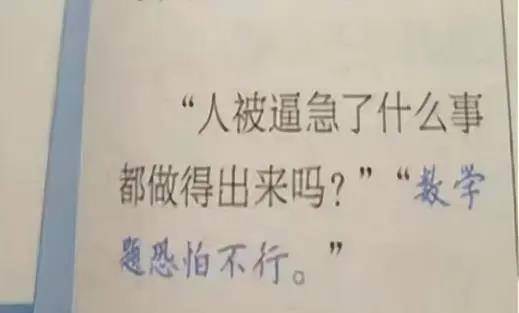 “人被逼急了什么事
都做得出来吗?”“数学
题恐怕不行。”